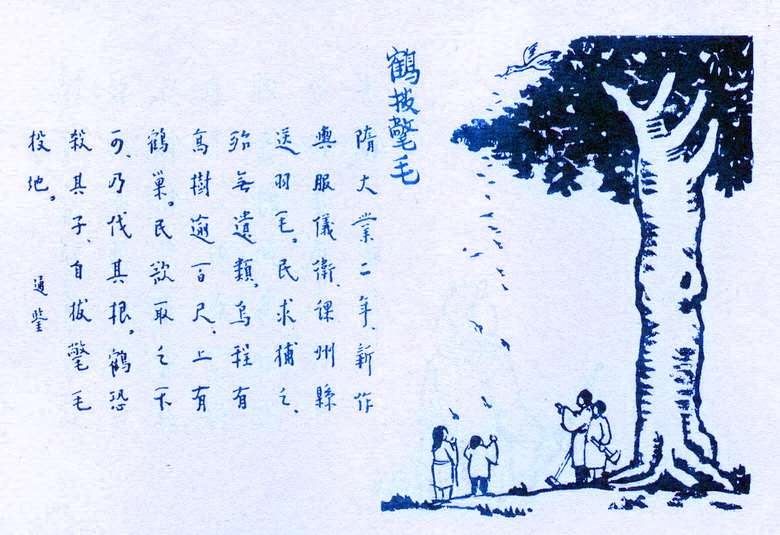 鶴拔氅毛
隋大業二年、新作
輿服儀衛、課州縣
送羽毛。民求捕之、
殆無遺類。烏程有
高樹逾百尺、上有
鶴巢。民欲取之不
可、乃伐其根。鶴恐
殺其子、自拔氅毛
投地。
通鑒